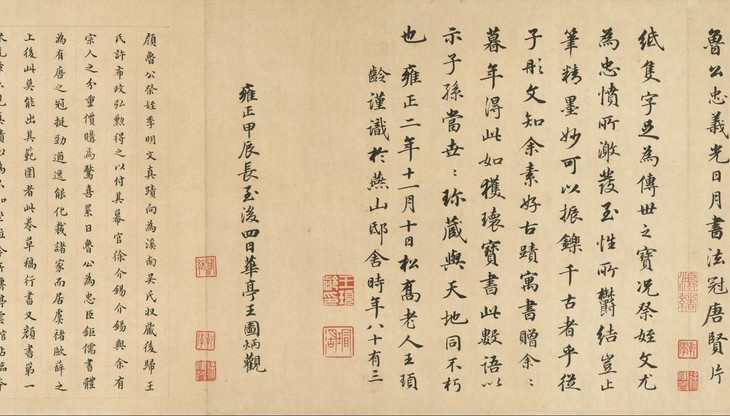 魯公忠義光日月書法冠唐賢片
紙隻字足為傳世之寶況祭姪文尤
為忠憤所激發至性所鬱結豈止
筆精墨妙可以振鑠千古者乎從
子彤文知余素好古蹟寓書贈余〻
暮年得此如獲瓌寶書此數語以
示子孫當世〻珎藏與天地同不朽
也 雍正二年十一月十日松喬老人王頊
齡謹識於燕山邸舍時年八十有三
雍正甲辰長至後四日華亭王圖炳觀
顏魯公祭姪季明文真蹟向為溪南吳氏收藏後歸王
氏許布政弘勲得之以付其幕官徐介錫介錫與余有
宗人之分重價購為驚喜累日魯公為忠臣鉅儒書體
為有唐之冠挺勁遒逸能化裁諸家而居虞褚歐薛之
上後此莫能出其範圍者此卷草稿行書又顏書第一